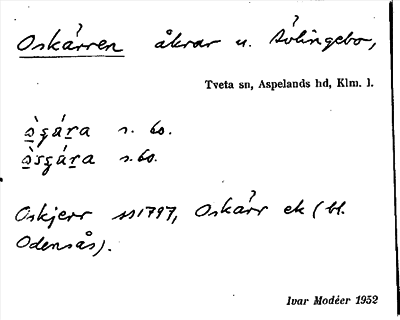 Oskärren åkrar u. Sölingebo,
Tveta sn, Aspelands hd, Klm. l.
s. bo.
s. bo.
Oskjerr ss1797, Oskärr ek (bl.
Odensås).
Ivar Modéer 1952